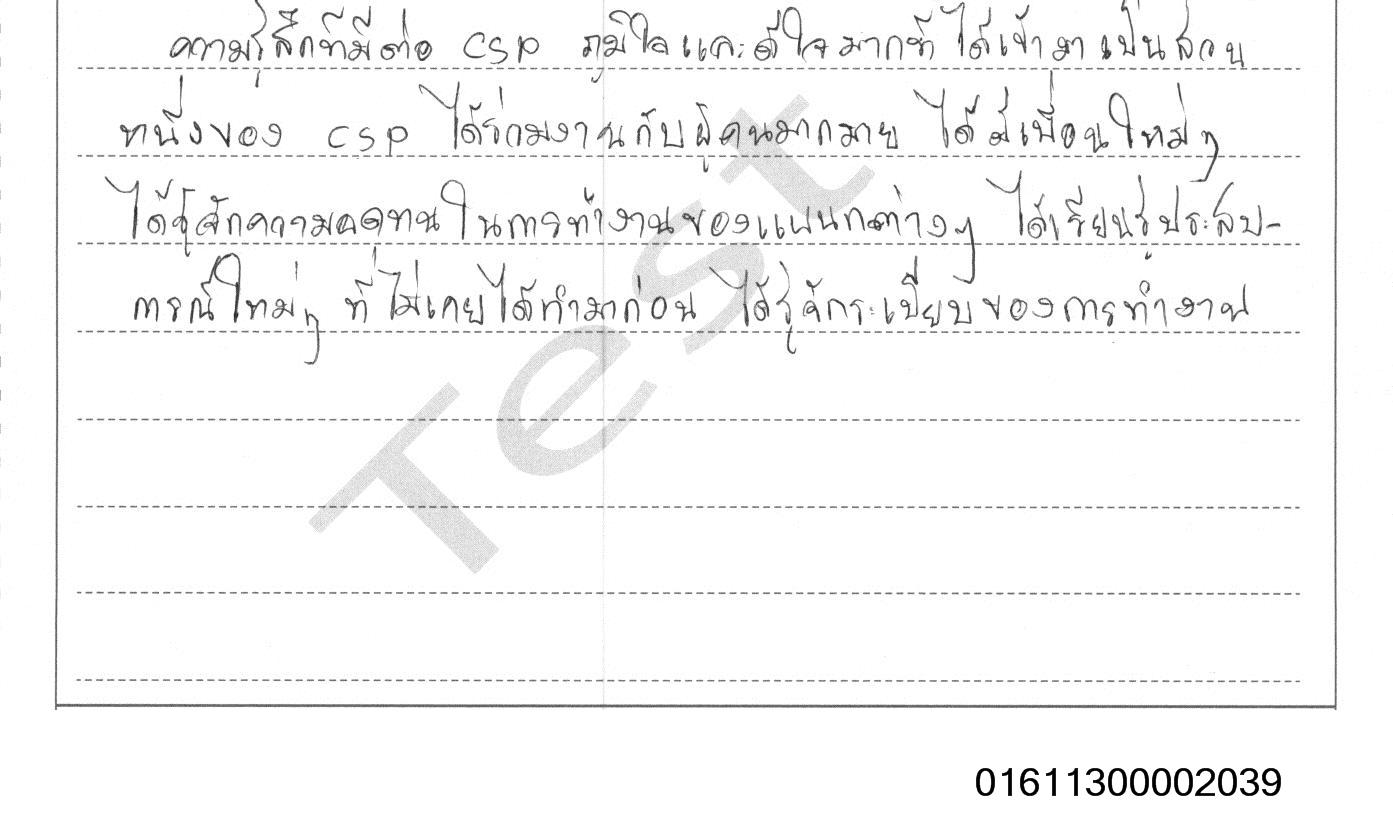 ความรู้สึกที่มีต่อ CSP ภูมิใจและดีใจมากที่ได้เข้ามาเป็นส่วน
หนึ่งของ CSP ได้ร่วมงานกับผู้คนมากมาย ได้มีเพื่อนใหม่ๆ
ได้รู้จักความอดทนในการทำงานของแผนกต่างๆ ได้เรียนรู้ประสบ-
การณ์ใหม่ๆ ที่ไม่เคยได้ทำมาก่อน ได้รู้จักระเบียบของการทำงาน
Test
01611300002039